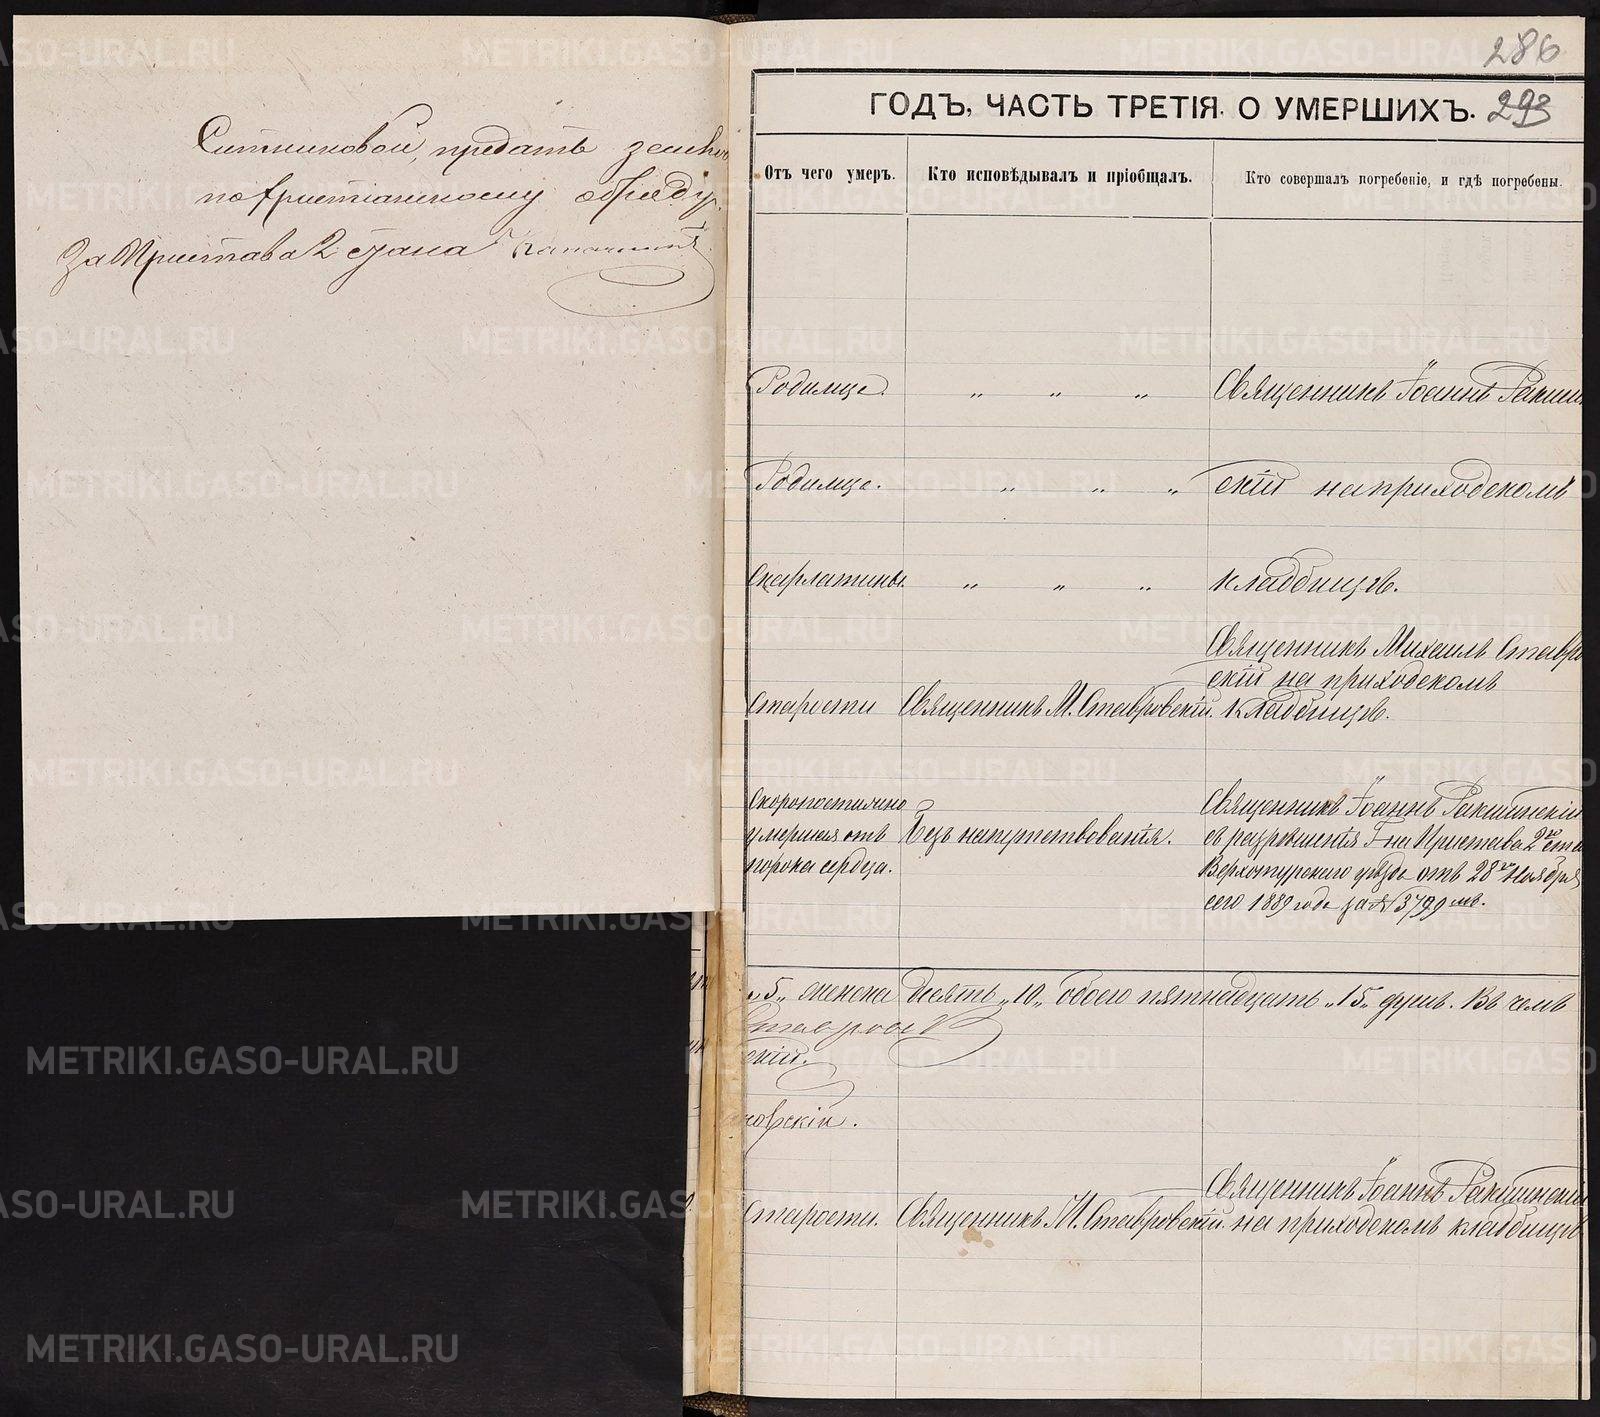 Ситниковой, предать земле
по христіанскому обряду.
За Пристава 2 стана
286
ГОДЪ, ЧАСТЬ ТРЕТІЯ. О УМЕРШИХЪ. 293
Отъ чего умеръ. Кто исповѣдывалъ и пріобщалъ. Кто совершалъ погребеніе, и гдѣ погребены.
Родимца. „ „ „ Священникъ Іоаннъ Ракшин
Родимца. „ „ „ скій на приходскомъ
Скарлатины. „ „ „ кладбищѣ.
Священникъ Михаилъ Ставро
скій на приходскомъ
Старости Священникъ М. Ставровскій. кладбищѣ.
Скоропостижно
умершая отъ
порока сердца.
Безъ напутствованія.
Священникъ Іоаннъ Ракшинскій
съ разрѣшенія Г-на Пристава 2го ста
Верхотурскаго уѣзда отъ 28го Ноября
сего 1889 года за № 3799 мъ.
„5„ женска десять „10„ обоего пятнадцать „15„ душъ. Въ чемъ
Ставров
скій.
новскій.
Священникъ Іоаннъ Ракшинскій
Старости. Священникъ М. Ставровскій. на приходскомъ кладбищѣ
METRIKI.GASO-URAL.RU